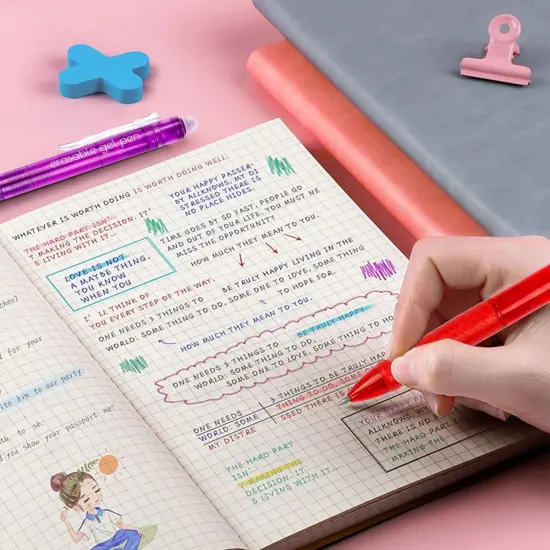 erasable gel pen
WHATEVER IS WORTH DOING IS WORTH DOING WELL.
THE HARD PART ISN'
T MAKING THE DECISION. IT'
S LIVING WITH IT.
YOUR HAPPY PASSER-
BY ALLKNOWS, MY DI
STRESSED THERE IS
NO PLACE HIDES.
LOVE IS NOT
A MAYBE THING.
YOU KNOW
WHEN YOU
TIME GOES BY SO FAST, PEOPLE GO
AND OUT OF YOUR LIFE. YOU MUST NE
MISS THE OPPORTUNITY
HOW MUCH THEY MEAN TO YOU.
I' LL THINK OF
YOU EVERY STEP OF THE WAY.
BE TRULY HAPPY LIVING IN THE
ONE NEEDS 3 THINGS TO
WORLD: SOME THING TO DO, SOME ONE TO LOVE, SOME THING
TO HOPE FOR.
HOW MUCH THEY MEAN TO YOU.
BE TRULY HAPPY
ONE NEEDS 3 THINGS TO
WORLD: SOME THING TO DO,
SOME ONE TO LOVE, SOME THING TO HO
ONE NEEDS 3 THINGS TO BE TRULY HA
WORLD: SOME THING TO DO, SOME O
MY DISTRE SSED THERE IS
YOUR HAPPY
ALLKNOWS, MY
THERE IS NO
THE HARD PART
MAKING THE
THE HARD PART
ISN'
T MAKING THE
DECISION. IT'
S LIVING WITH IT.
for your
ite him to our party.
th to sb.
d you show your passport me?